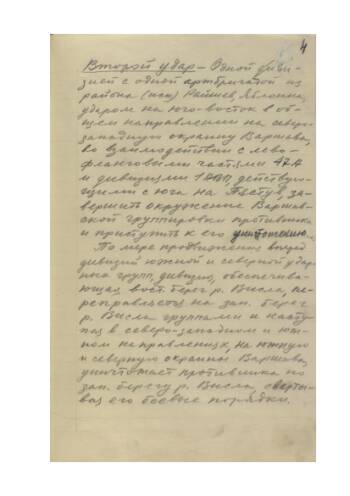 4
Второй удар – Одной диви-
зией с одной артбригадой из
района (иск) Райшев, Яблонна,
ударом на юго-восток в об-
щем направлении на северо-
западную окраину Варшавы,
во взаимодействии с лево-
фланговыми частями 47 А
и дивизиями 1 АВП, действую-
щими с юга на , за-
вершить окружение Варшав-
ской группировки противника
и приступить к его уничтожению.
По мере продвижения вперед
дивизий южной и северной удар-
ных групп, дивизии, обеспечива-
ющая вост. берег р. Висла, пе-
реправляется на зап. берег
р. Висла группами и насту-
пая в северо-западном и юж-
ном направлениях, на южную
и северную окраины Варшавы,
уничтожает противника по
зап. берегу р. Висла, сверты-
вая его боевые порядки.